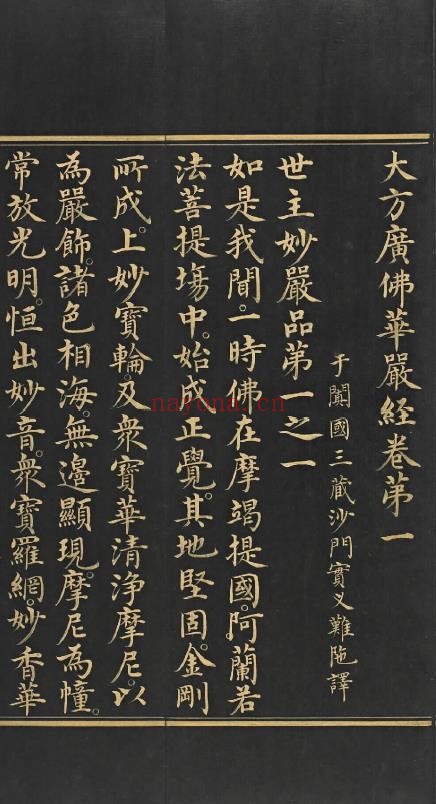 大方廣佛華嚴經卷第一
于闐國三藏沙門實叉難陁譯
世主妙嚴品第一之一
如是我聞。一時佛在摩竭提國。阿蘭若
法菩提場中。始成正覺。其地堅固。金剛
所成。上妙寶輪。及衆寶華清淨摩尼。以
為嚴飾。諸色相海。無邊顯現。摩尼為幢。
常放光明。恒出妙音。衆寶羅網。妙香華
nayona.cn